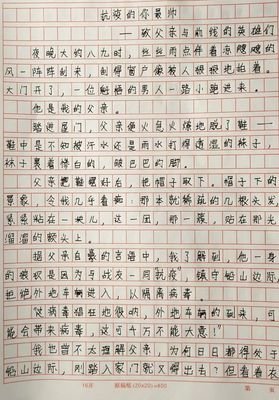 抗疫的你最帅
——致父亲与前线的英雄们
夜晚大约八九时，丝丝雨点伴着凉飕飕的
风一阵阵刮来，刮得窗户像被人狠狠地拍着。
大门开了，一位魁梧的男人一路小跑进来。
他是我的父亲。
踏进屋门，父亲便火急火燎地脱了鞋——
鞋中是不知被汗水还是雨水打得透湿的袜子，
袜子裹着惨白的，皱巴巴的脚。
父亲把鞋摆好后，把帽子取下。帽子下的
景象，令我几乎看痴：那本就稀疏的几根头发，
紧紧粘在一块儿，这一团，那一簇，贴在那光
溜溜的额头上。
据父亲自豪的言语中，我了解到，他一身
的疲惫是因为与战友一同“战疫”，镇守铅山边际，
拒绝外地车辆进入，以隔离病毒。
“这病毒猖狂地很呐，外地车辆的到来，可
能会带来病毒，这可千万不能大意！”
我也曾不太理解父亲，为何日日都得处于
铅山边际，刚踏入家门就又得出去？但看着衣
16开 原稿纸 (20×20)=400 第 页